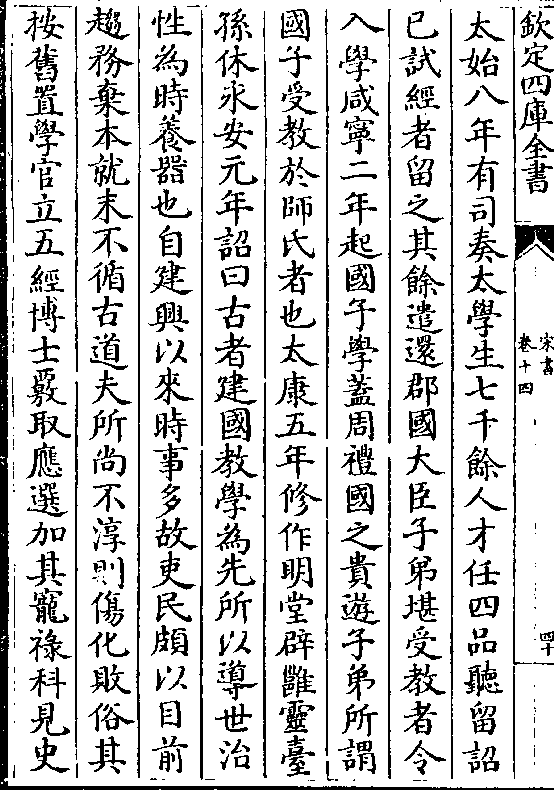 欽定四庫全書
宋書
卷十四
四十
太始八年有司奏太學生七千餘人才任四品聽留詔
已試經者留之其餘遣還郡國大臣子弟堪受教者令
入學咸寧二年起國子學蓋周禮國之貴遊子弟所謂
國子受教於師氏者也太康五年修作明堂辟雝靈臺
孫休永安元年詔曰古者建國教學為先所以導世治
性為時養器也自建興以來時事多故吏民頗以目前
趨務棄本就末不循古道夫所尚不淳則傷化敗俗其
桉舊置學官立五經博士覈取應選加其寵祿科見史